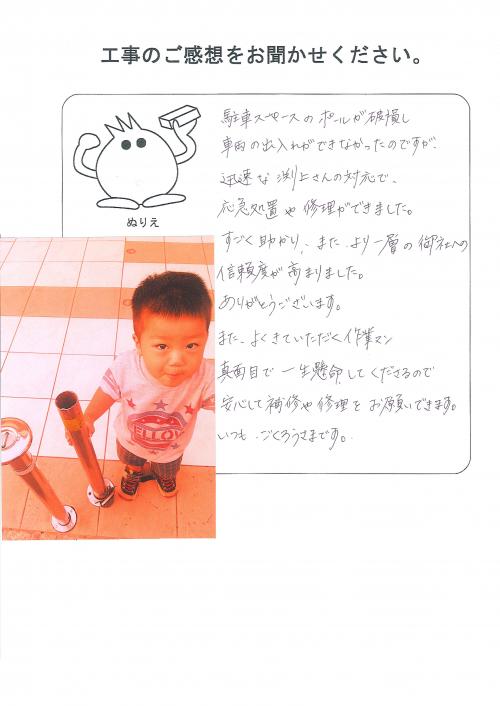 工事のご感想をお聞かせください。
ぬりえ
駐車スペースのポールが破損し
車両の出入れができなかったのですが、
迅速な渕上さんの対応で、
応急処置や修理ができました。
すごく助かり、また、より一層の御社への
信頼度が高まりました。
ありがとうございます。
また、よくきていただく作業マン
真面目で一生懸命してくださるので
安心して補修や修理をお願いできます。
いつも、ごくろうさまです。